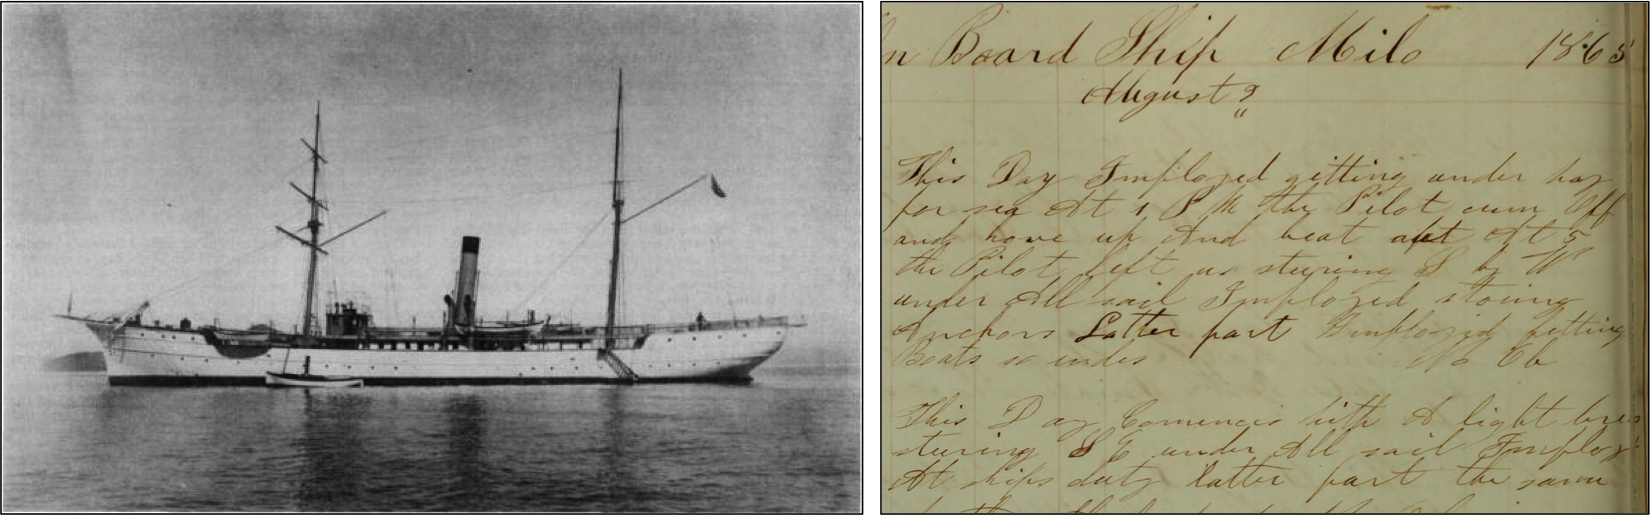 n Board Ship Milo 1865
August 9
"
This Day Imployed gitting under way
for sea At 1 P M the Pilot cum Off
and hove up And beat out At 5
the Pilot left us stering S by W
under All sail Imployed stoing
Anchors Latter part Imployed fitting
Boats
This Day Comences with A light bre
stering S E under All sail Imploy
At ships duty latter part the same